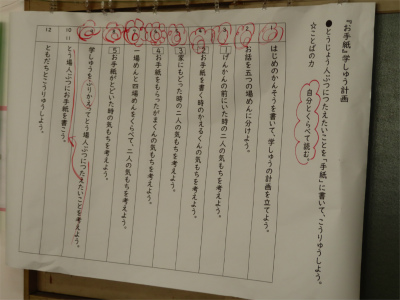 『お手紙』学しゅう計画
●とうじょう人ぶつにつたえたいことを「手紙」に書いて、こうりゅうしよう。
☆ことばの力
自分とくらべて読む。
はじめのかんそうを書いて、学しゅうの計画を立てよう。
お話を五つの場めんに分けよう。
1 げんかんの前にいた時の二人の気もちを考えよう。
2 お手紙を書く時のかえるくんの気もちを考えよう。
3 家にもどった時の二人の気もちを考えよう。
4 お手紙をもらったがまくんの気もちを考えよう。
一場めんと四場めんをくらべて、二人の気もちを考えよう。
5 お手紙がとどいた時の気もちを考えよう。
学しゅうをふりかえってとう場人ぶつにつたえたいことを考えよう。
10
11
とう場人ぶつにお手紙を書こう。
12
ともだちとこうりゅうしよう。